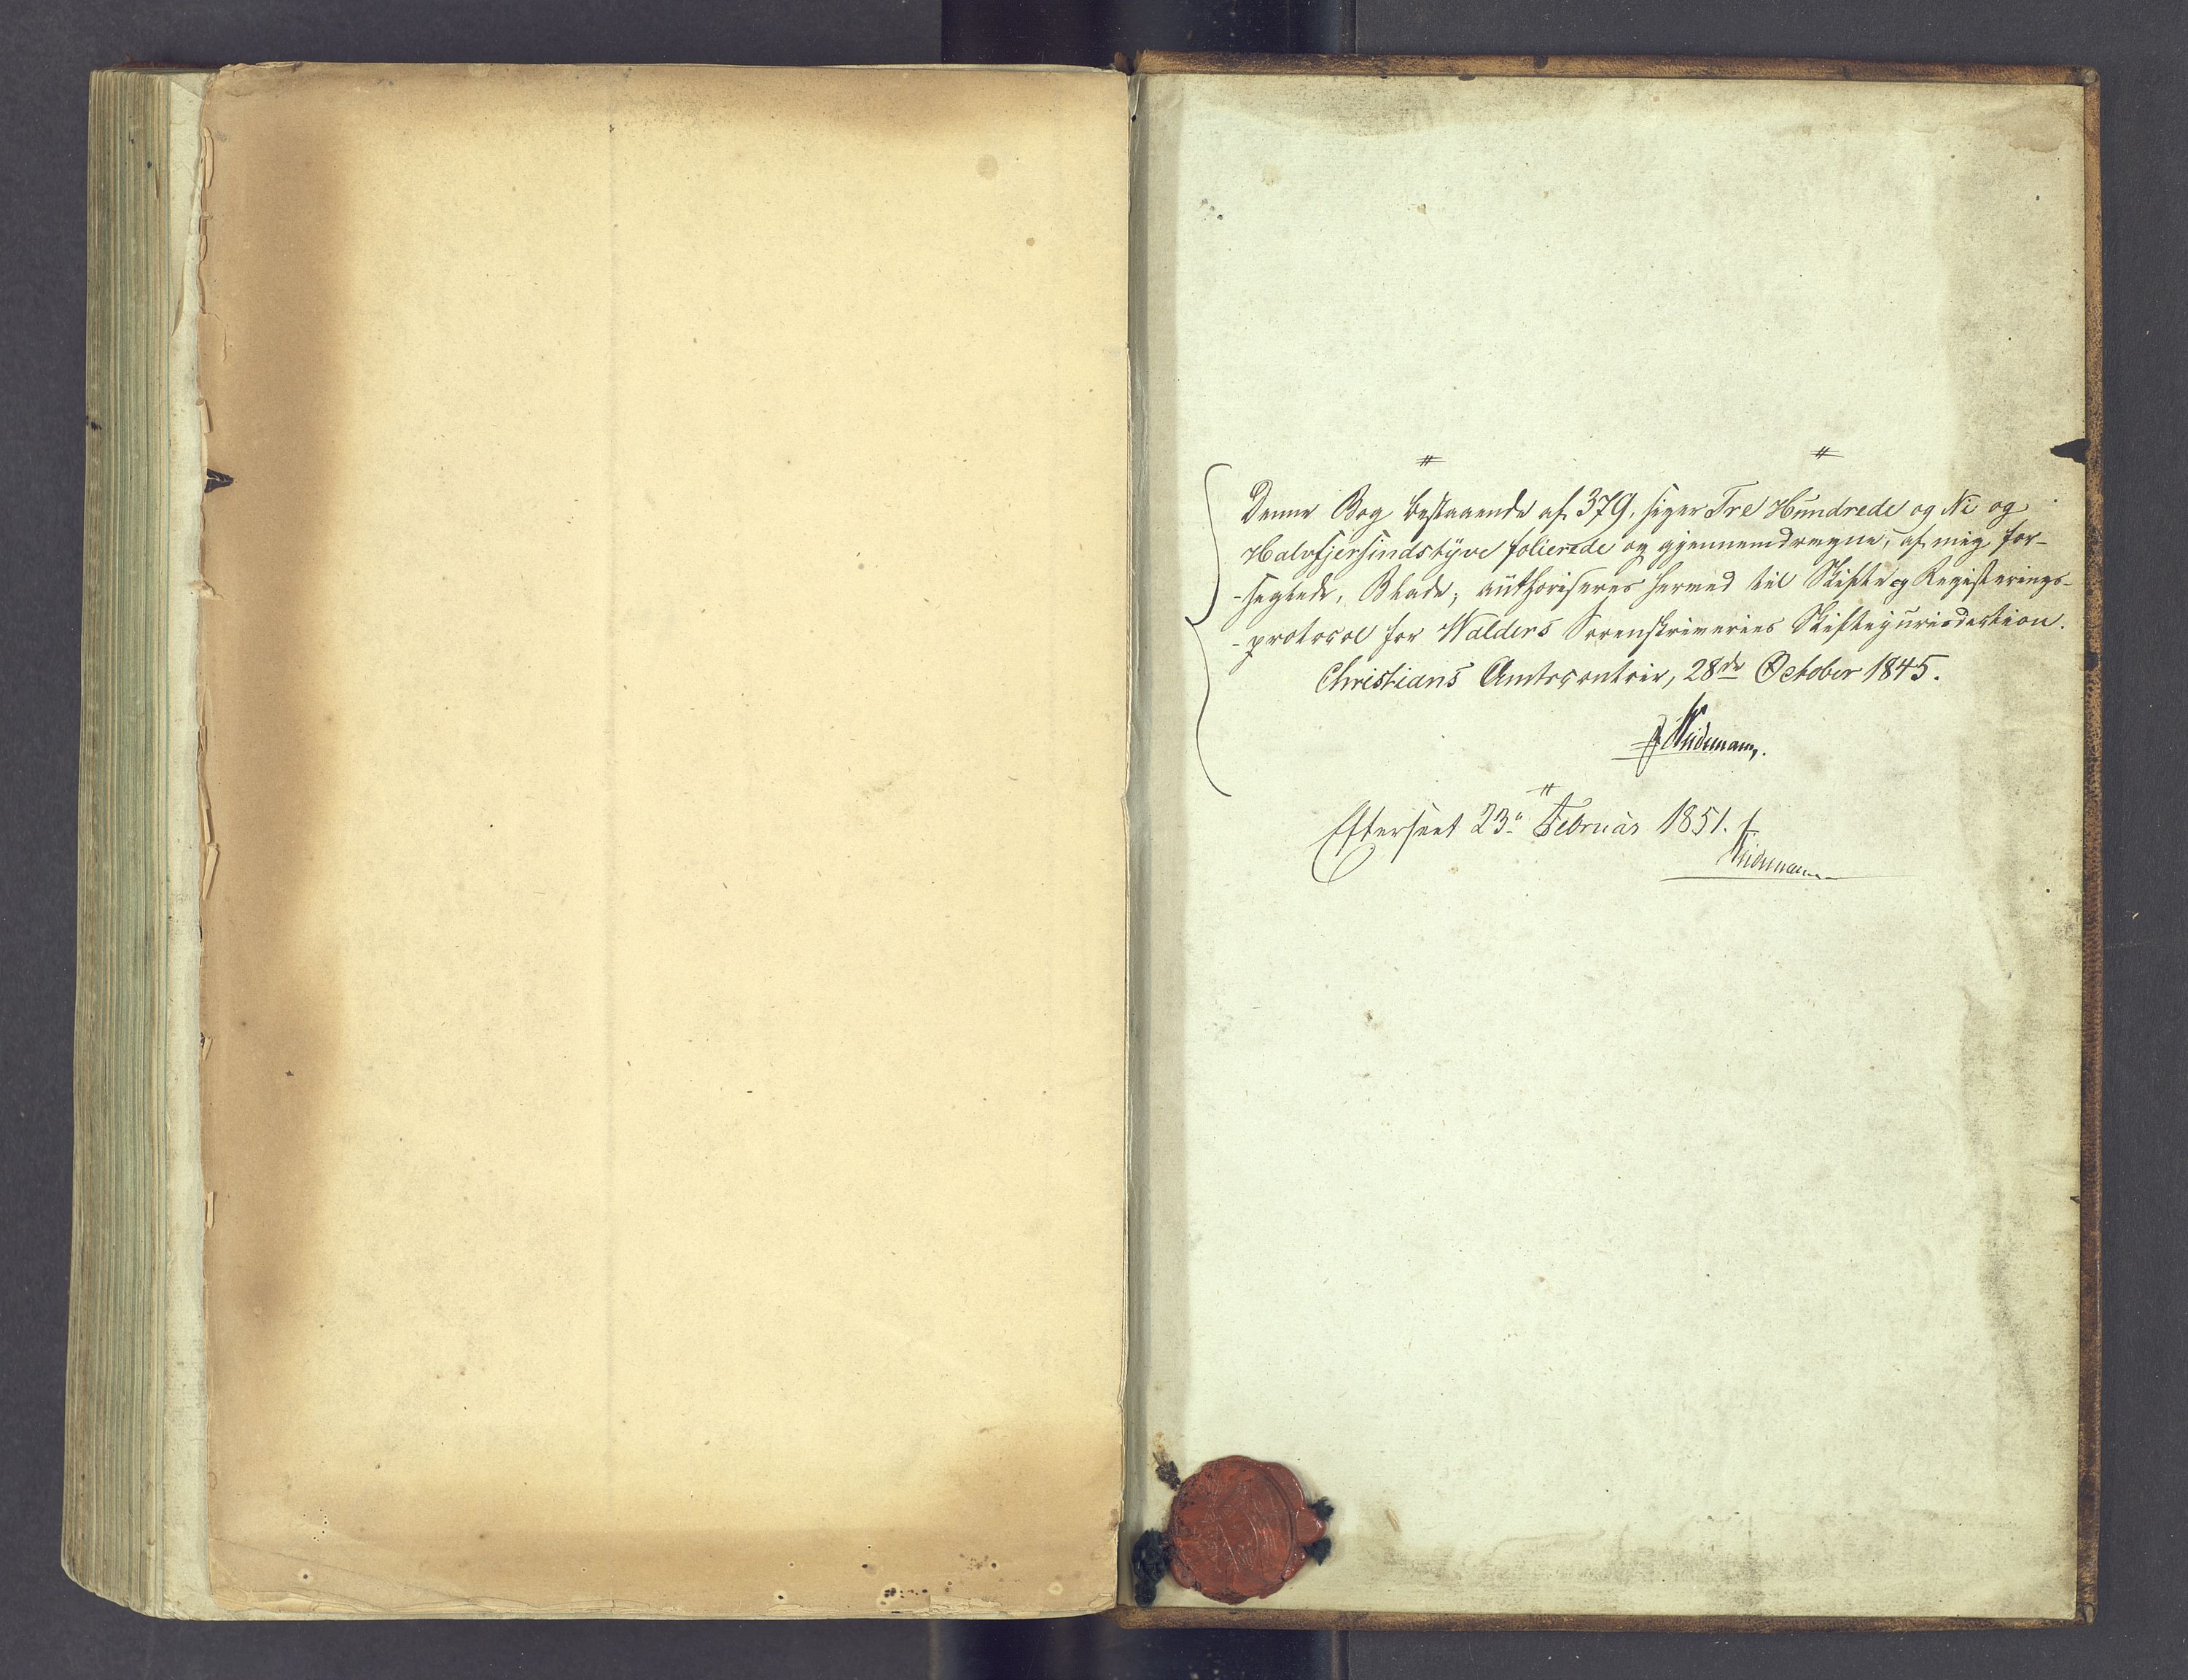 Denne Bog bestaaende af 379, siger Tre Hundrede og Ni og
Halvfjersindstyve folierede og gjennemdragne, af mig for-
-seglede, Blade; authoriseres hermed til Skifte og Registerings-
-protocol for Walders Sorenskriveries Skiftejurisdiction.
Christians Amtscontoir, 28de October 1845.
Weidemann.
Efterseet 23de Februar 1851.
Weidemann